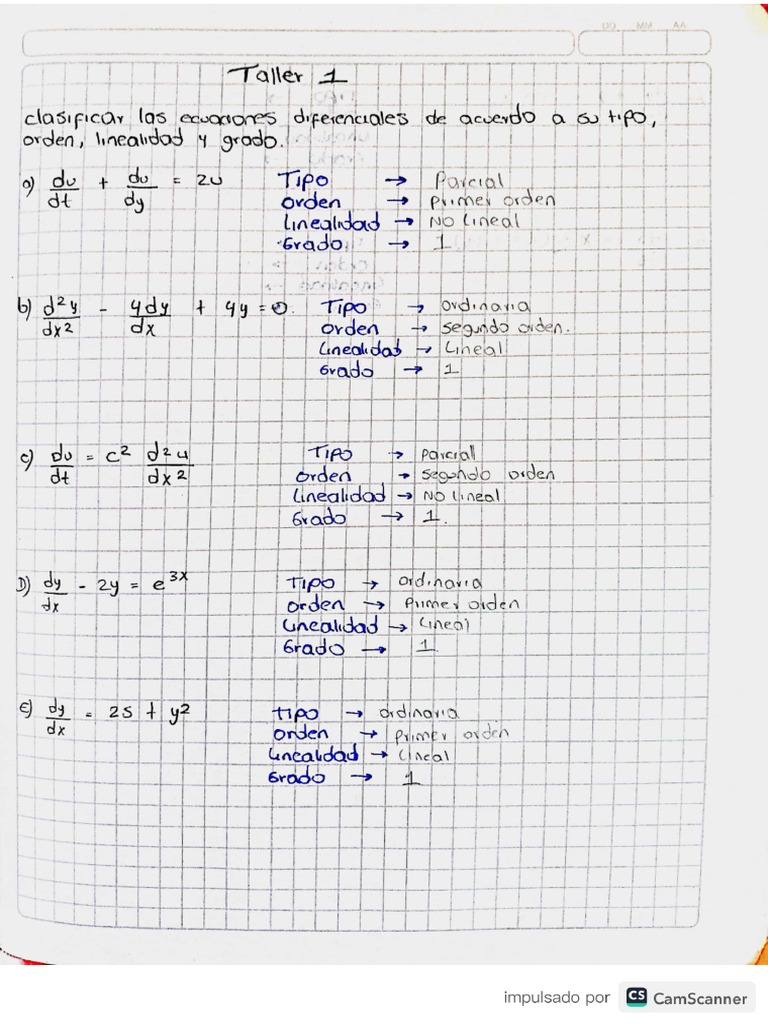 DD MM AA
Taller 1
clasificar las ecuaciones diferenciales de acuerdo a su tipo,
orden, linealidad y grado.
a) du/dt + du/dy = 2u Tipo → Parcial
orden → Primer orden
Linealidad → No Lineal
Grado → 1
b) d²y/dx² - 4dy/dx + 4y = 0. Tipo → ordinaria
orden → segundo orden.
Linealidad → Lineal
Grado → 1
c) du/dt = c² d²u/dx² Tipo → Parcial
orden → segundo orden
Linealidad → No Lineal
Grado → 1.
D) dy/dx - 2y = e^3x Tipo → ordinaria
orden → Primer orden
Linealidad → Lineal
Grado → 1
E) dy/dx = 25 + y² Tipo → ordinaria
orden → Primer orden
Linealidad → Lineal
Grado → 1
impulsado por CS CamScanner